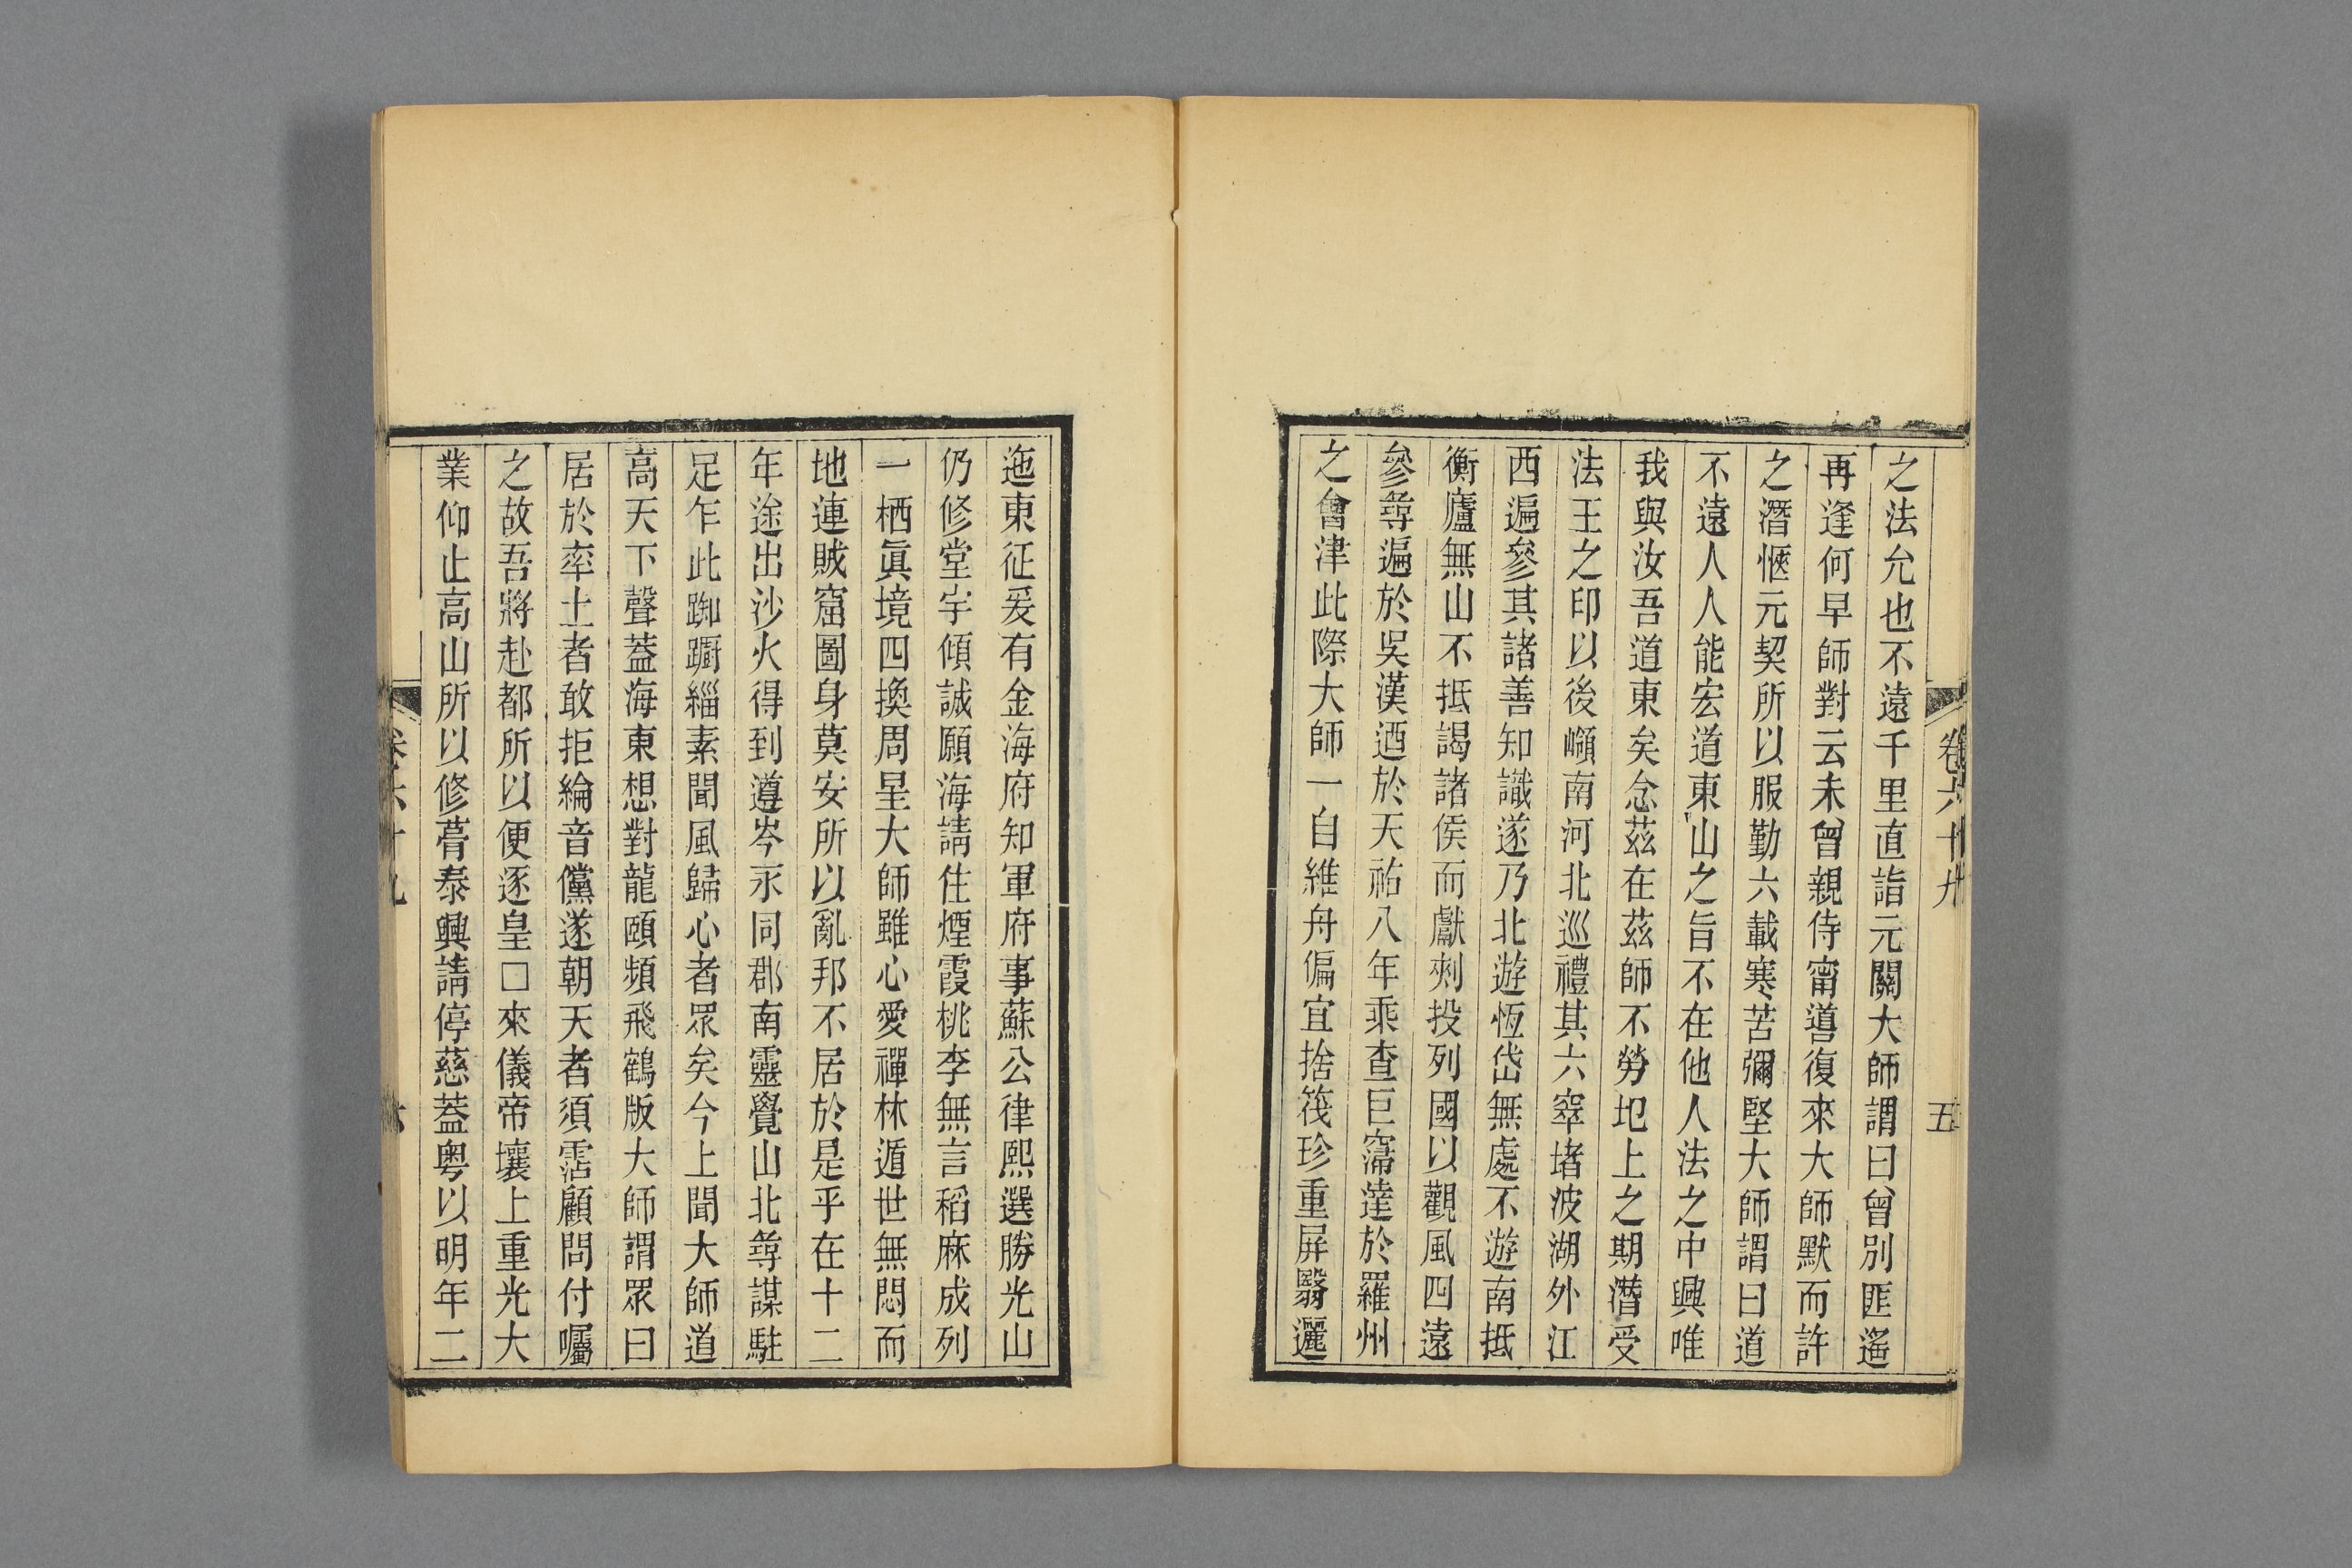 之法允也不遠千里直詣元關大師謂曰曾別匪遙
再逢何早師對云未曾親侍甯噵復來大師默而許
之潛愜元契所以服勤六載寒苦彌堅大師謂曰道
不遠人人能宏道東山之旨不在他人法之中興唯
我與汝吾道東矣念茲在茲師不勞圯上之期潛受
法王之印以後嶺南河北巡禮其六窣堵波湖外江
西遍參其諸善知識遂乃北遊恆岱無處不遊南抵
衡廬無山不抵謁諸侯而獻刺投列國以觀風四遠
參尋遍於吳漢迺於天祐八年乘查巨寖達於羅州
之會津此際大師一自維舟偏宜捨筏珍重屏翳邐
迤東征爰有金海府知軍府事蘇公律熙選勝光山
仍修堂宇傾誠願海請住煙霞桃李無言稻麻成列
一栖眞境四換周星大師雖心愛禪林遁世無悶而
地連賊窟圖身莫安所以亂邦不居於是乎在十二
年途出沙火得到遵岑永同郡南靈覺山北尋謀駐
足乍此踟躕緇素聞風歸心者眾矣今上聞大師道
高天下聲蓋海東想對龍頤頻飛鶴版大師謂眾曰
居於率土者敢拒綸音儻遂朝天者須霑顧問付囑
之故吾將赴都所以便逐皇□來儀帝壤上重光大
業仰止高山所以修葺泰興請停慈蓋粵以明年二
卷六十九
五